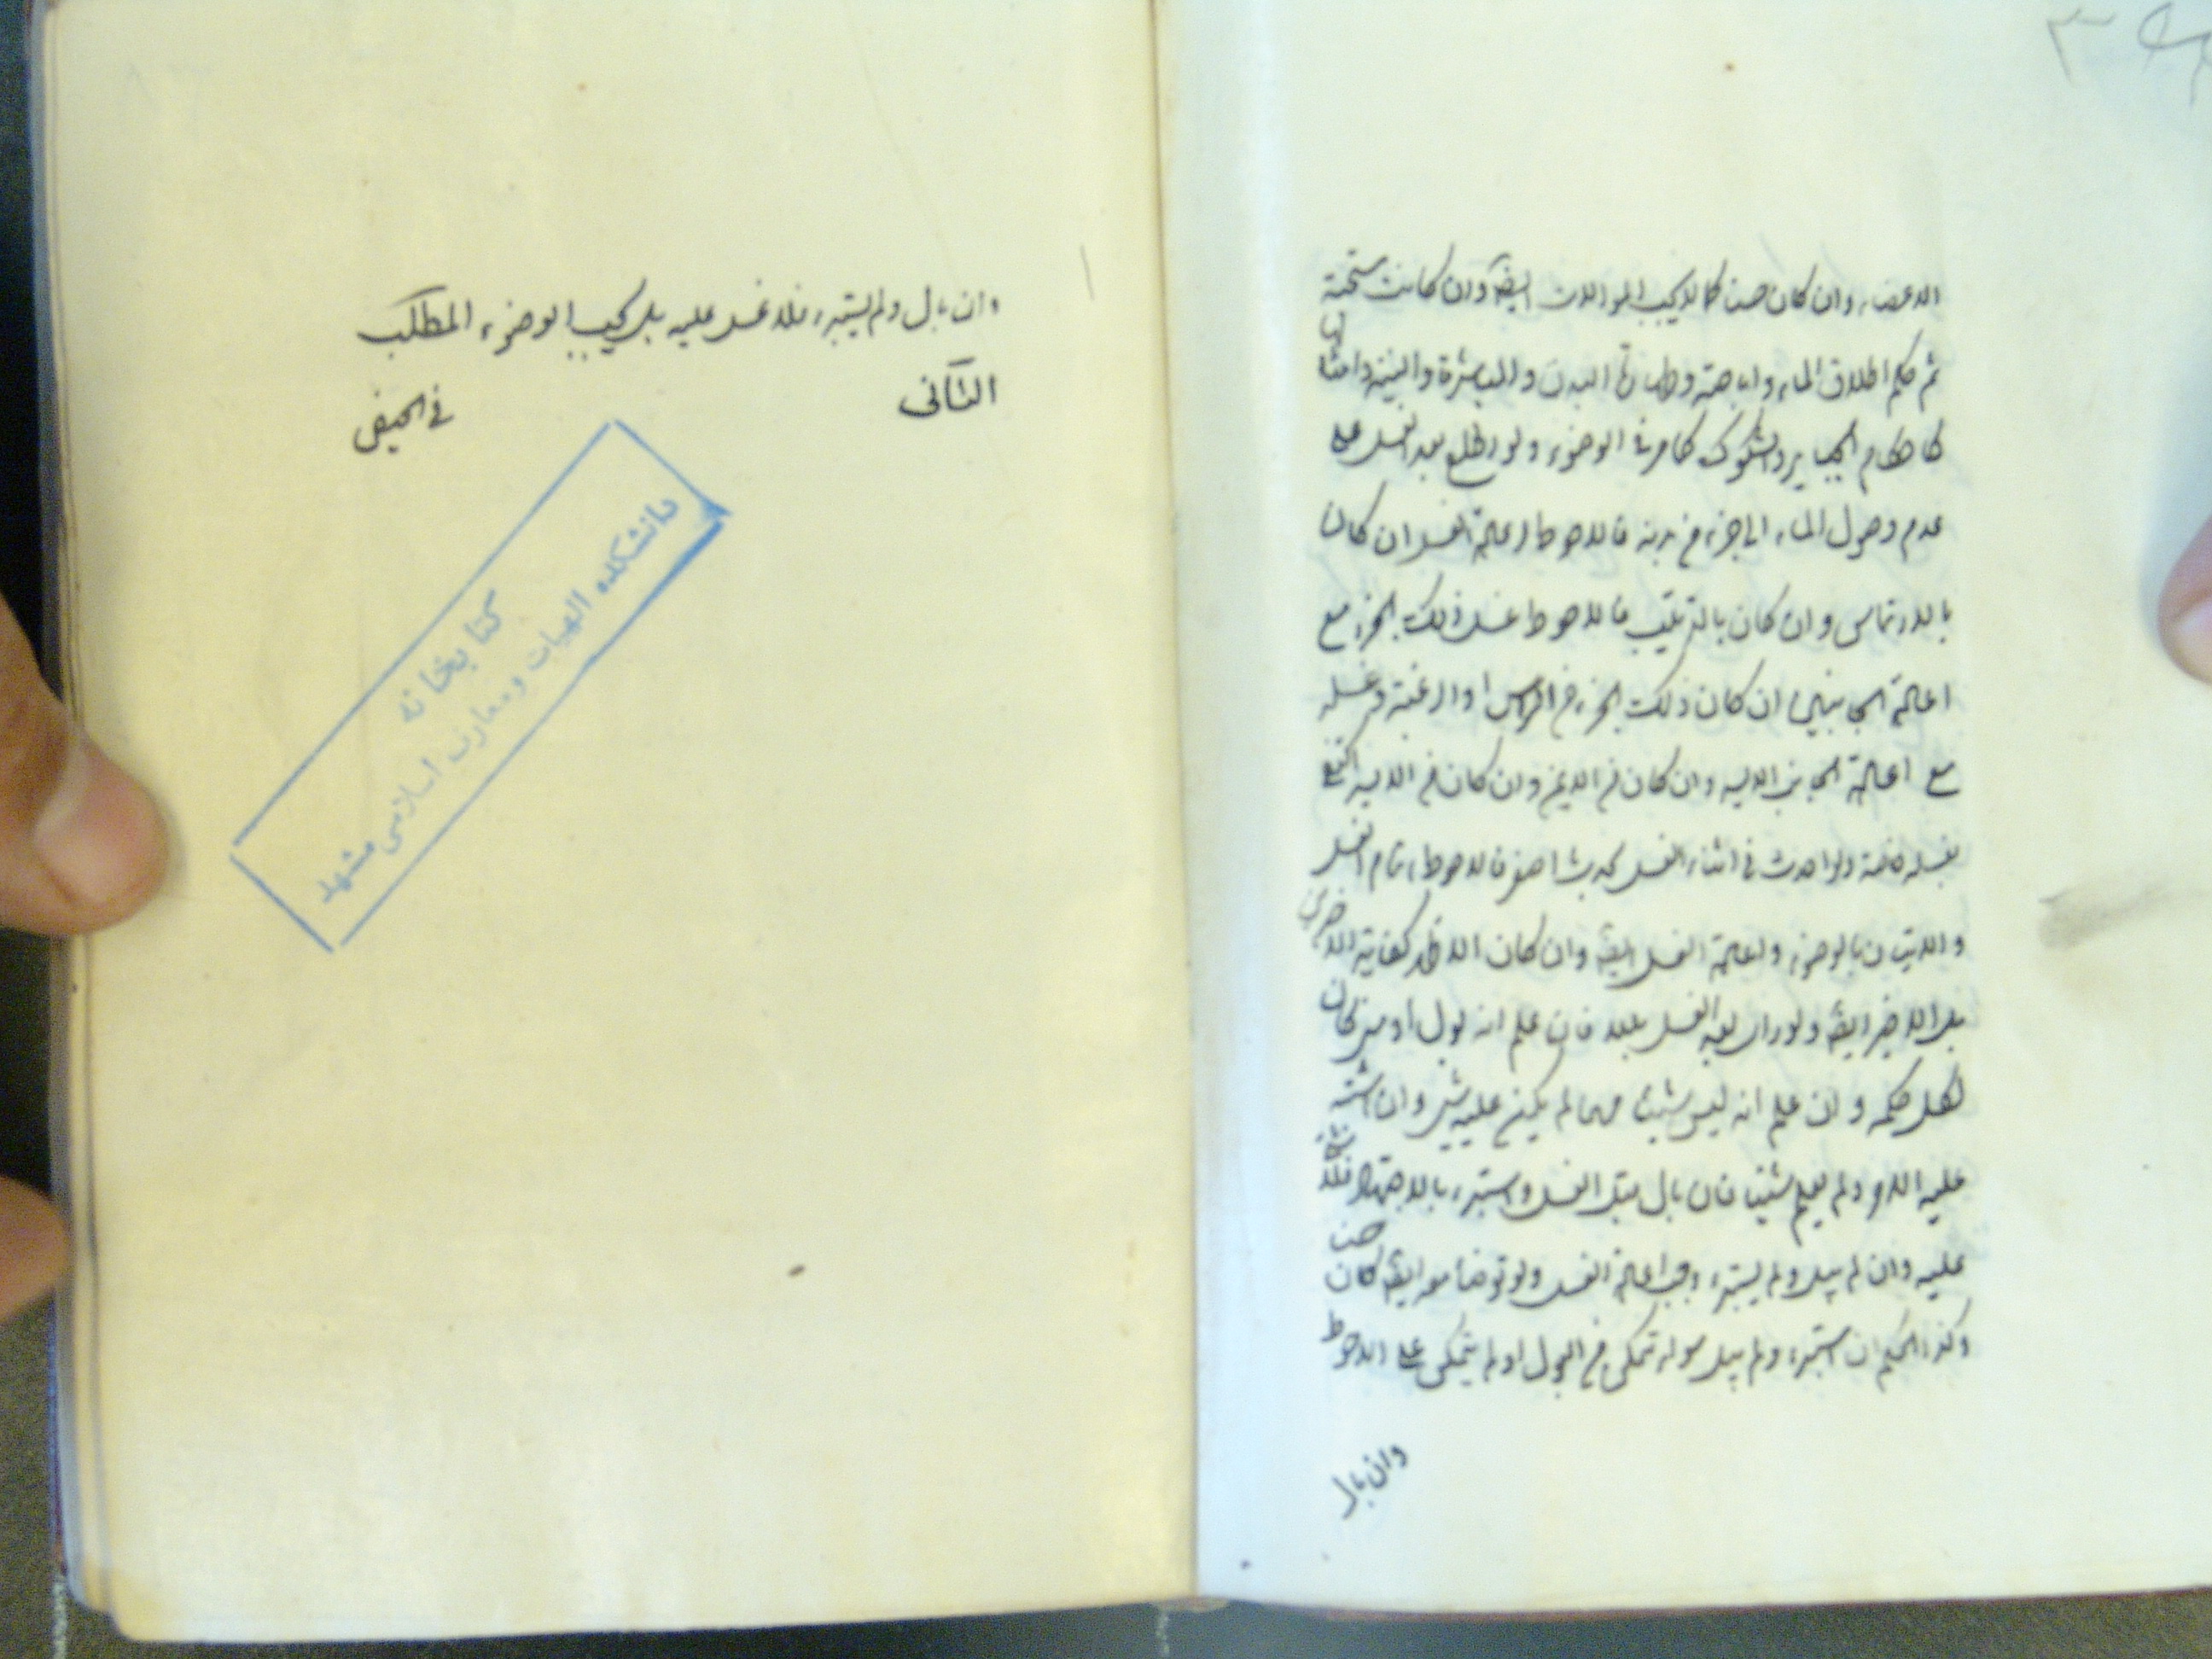 الاعضاء وان كان حسنا كما لا يجب الموالات ايضا وان كانت مستحبة
ثم حكم اطلاق الماء واباحته وطهارة البدن والمباشرة والنية وامثالها
كاحكام الجباير والشكوك كما مر في الوضوء ولو اطلع بعد الغسل على
عدم وصول الماء الى جزء من بدنه فالاحوط اعادة الغسل ان كان
بالارتماس وان كان بالترتيب فالاحوط غسل ذلك الجزء مع
اعادة الجانبين ان كان ذلك الجزء من الراس او الرقبة وغسله
مع اعادة الجانب الايسر وان كان في الايمن وان كان في الايسر اكتفى
بغسله خاصة ولو احدث في اثناء الغسل بحدث اصغر فالاحوط اتمام الغسل
والاتيان بالوضوء واعادة الغسل ايضا وان كان الاظهر كفاية الاخرى
بل الاخير ايضا ولو راى بعد الغسل بللا فان علم انه بول او مني كان
لكل حكمه وان علم انه ليس شيئا منهما لم يكن عليه شيء وان اشتبه
عليه الامر ولم يعلم شيئا فان بال قبل الغسل واستبرء بالاجتهاد فلا شيء
عليه وان لم يبل ولم يستبرء وجب اعادة الغسل ولو توضأ معه ايضا كان حسنا
وكذا الحكم ان استبرء ولم يبل سواء تمكن من البول او لم يتمكن على الاحوط
وان بال
وان بال ولم يستبرء فلا غسل عليه بل يجب الوضوء المطلب
الثانى في الحيض
كتابخانه
دانشكده الهيات ومعارف اسلامى مشهد